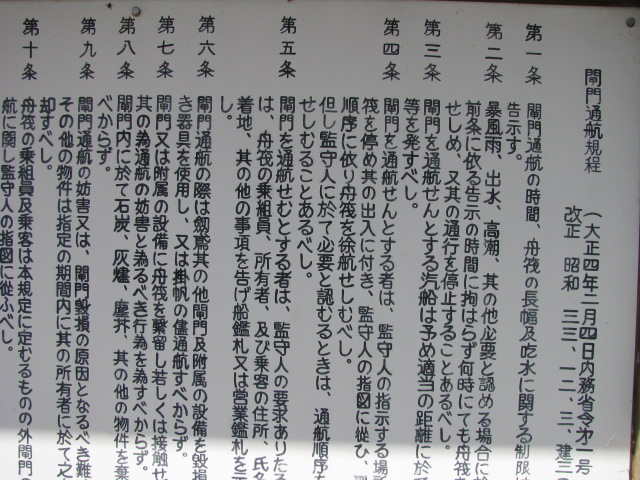 閘門通航規程
(大正四年二月四日内務省令㐧一号
改正 昭和 三三、一二、三、建三
㐧一条 閘門通航の時間、舟筏の長幅及吃水に関する制限は
告示す。
㐧二条 暴風雨、出水、高潮、其の他必要と認める場合に於
前条に依る告示の時間に拘はらず何時にても舟筏
せしめ、又其の通行を停止することあるべし。
㐧三条 閘門を通航せんとする汽船は予め適当の距離に於
等を発すべし。
㐧四条 閘門を通航せんとする者は、監守人の指示する場
筏を停め其の出入に付き、監守人の指図に從ひ、
順序に依り舟筏を徐航せしむべし。
但し監守人に於て必要と認むるときは、通航順序を
せしむることあるべし。
㐧五条 閘門を通航せむとする者は、監守人の要求ありたる
は、舟筏の乗組員、所有者、及び乗客の住所、氏名
着地、其の他の事項を告げ船鑑札又は営業鑑札を
し。
㐧六条 閘門通航の際は剱鳶其の他閘門及附属の設備を毀損
き器具を使用し、又は掛帆の儘通航すべからず。
㐧七条 閘門又は附属の設備に舟筏を繋留し若しくは接触せ
其の為通航の妨害と為るべき行為を為すべからず。
㐧八条 閘門内に於て石炭、灰燼、塵芥、其の他の物件を棄
べからず。
㐧九条 閘門通航の妨害又は、閘門毀損の原因となるべき難
その他の物件は指定の期間内に其の所有者に於て之
却すべし。
㐧十条 舟筏の乗組員及乗客は本規定に定むるものの外閘門の
航に関し監守人の指図に從ふべし。